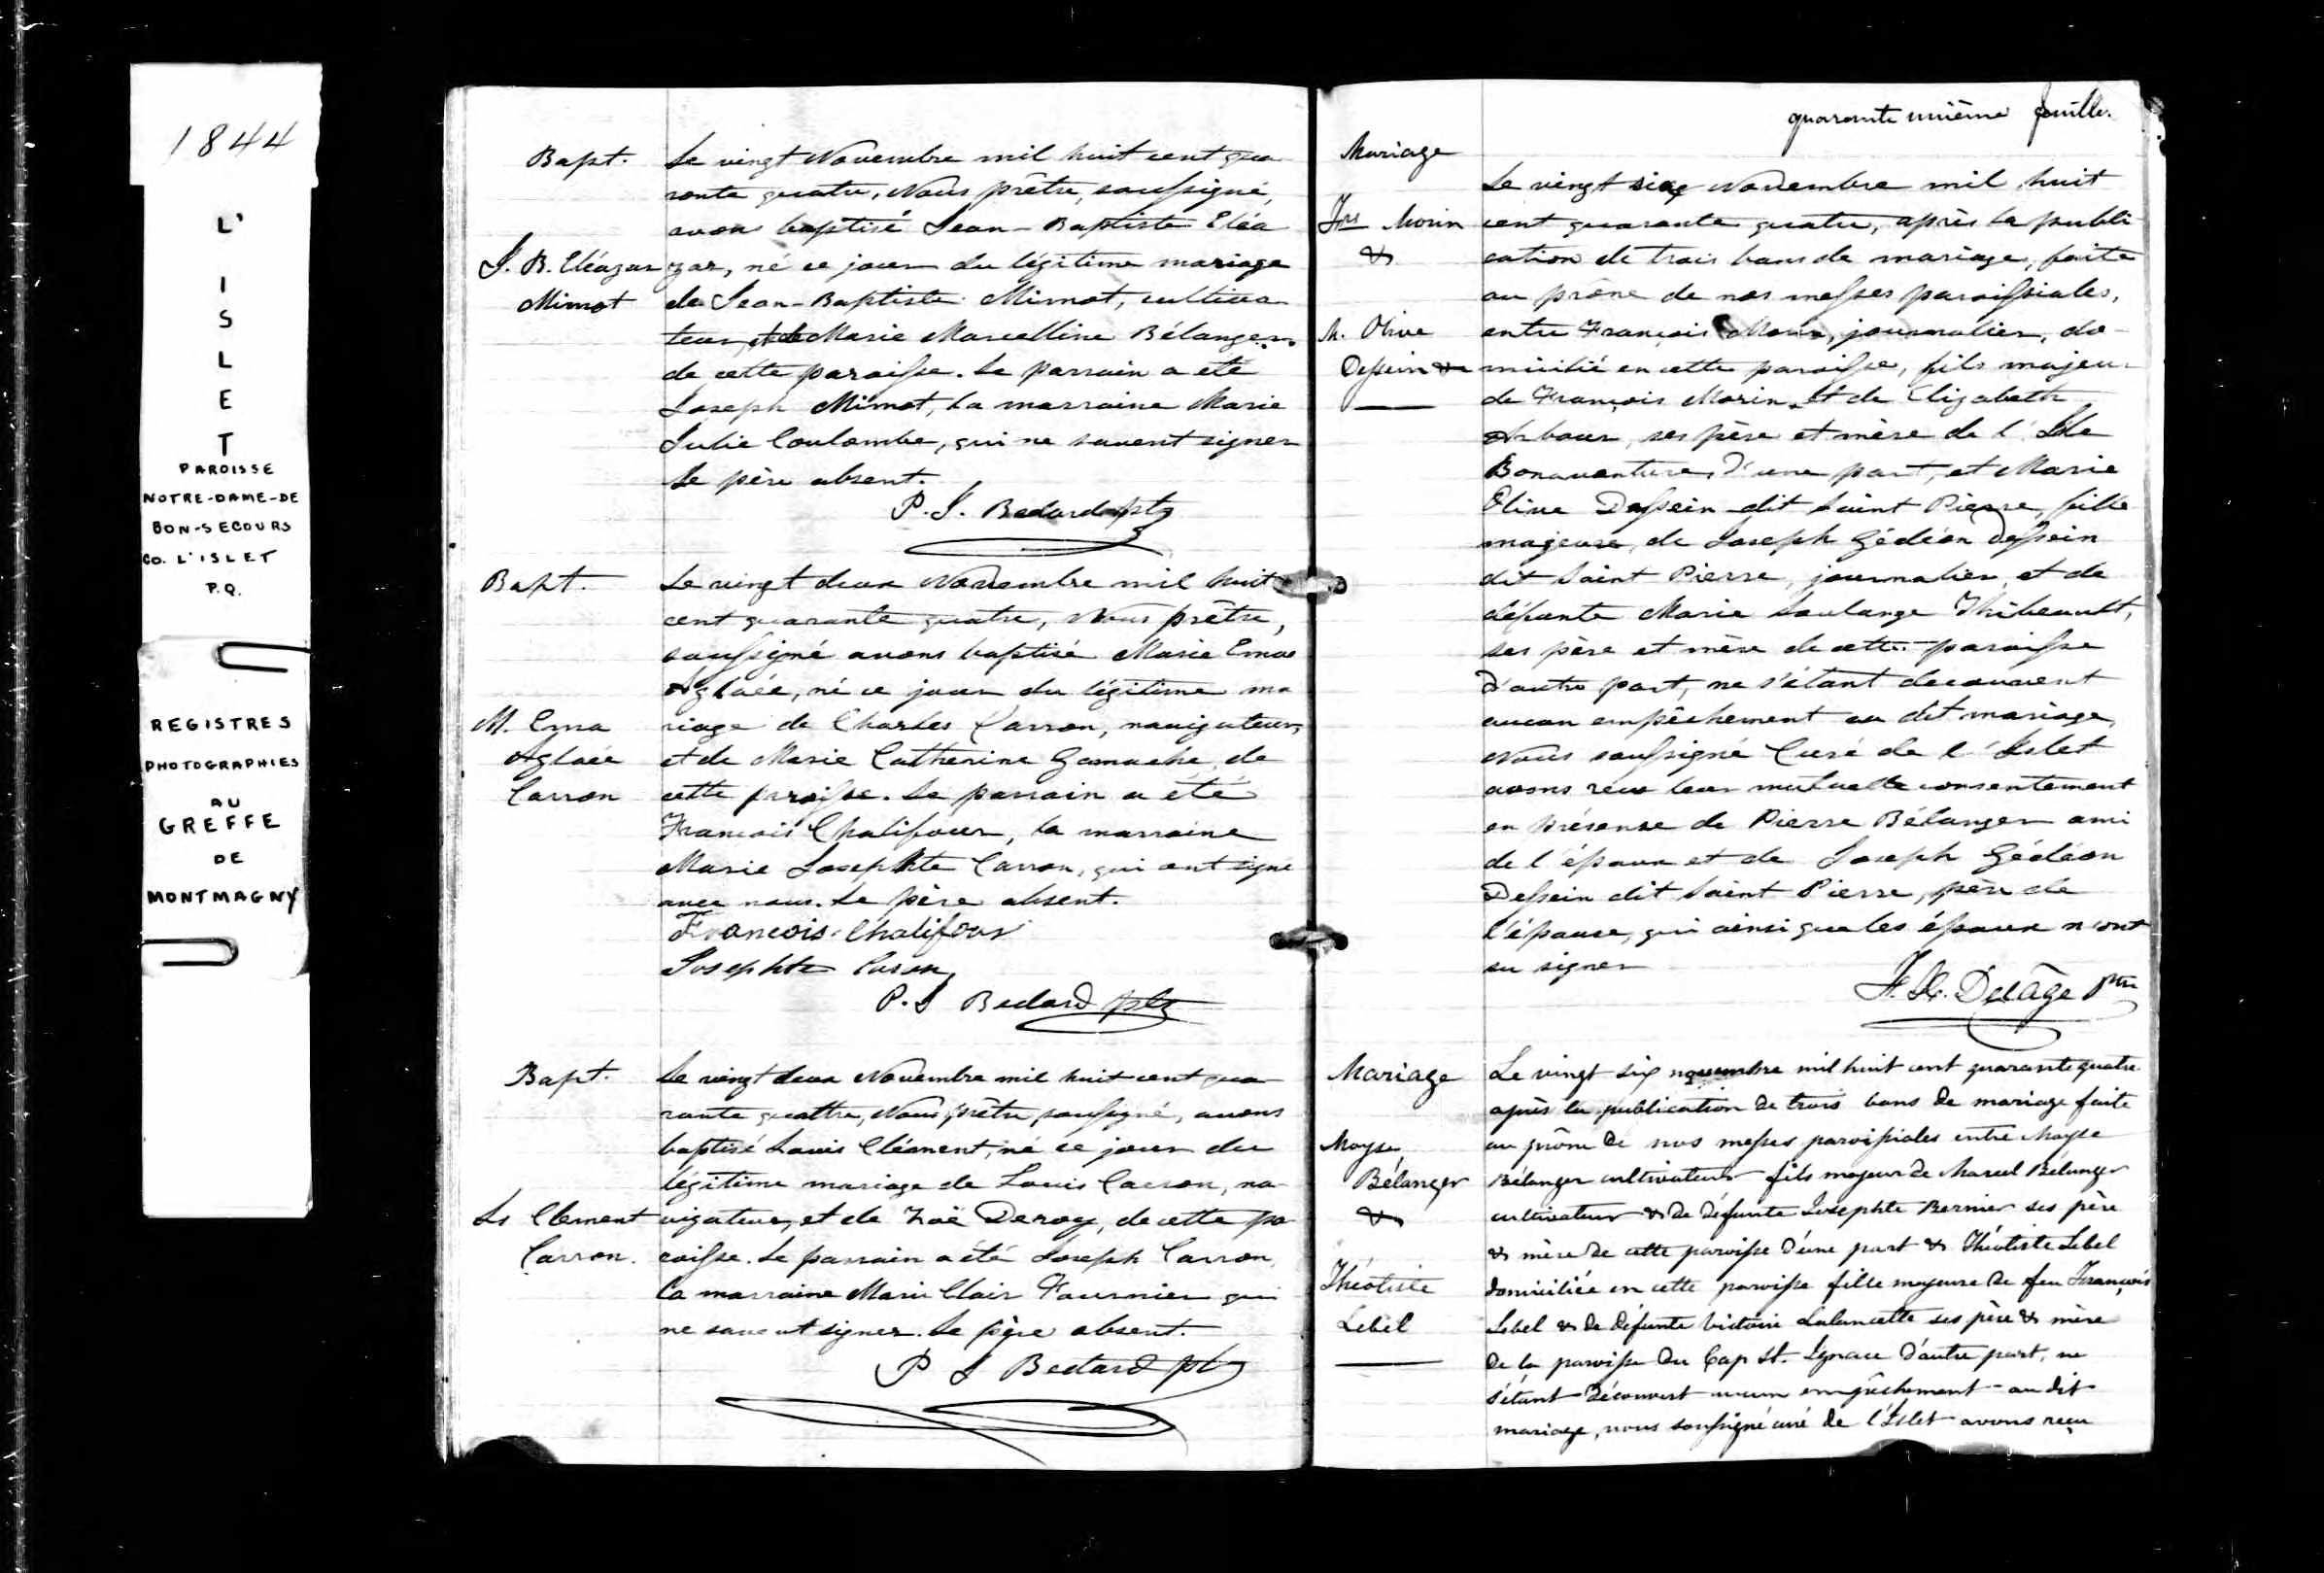 1844
L'
I
S
L
E
T
PAROISSE
NOTRE-DAME-DE
BON-SECOURS
CO. L'ISLET
P.Q.
REGISTRES
PHOTOGRAPHIES
AU
GREFFE
DE
MONTMAGNY
Bapt.
J. B. Eléazar
Mimot
Le vingt Novembre mil huit cent qua
rante quatre, Nous prêtre, soussigné,
avons baptisé Jean-Baptiste Eléa
zar, né ce jour du légitime mariage
de Jean-Baptiste Mimot, cultiva
teur, et de Marie Marcelline Bélanger
de cette paroisse. Le parrain a été
Joseph Mimot, la marraine Marie
Julie Coulombe, qui ne savent signer
Le père absent.
P. J. Bedard ptr
Bapt.
M. Ema
Aglaée
Carron
Le vingt deux Novembre mil huit
cent quarante quatre, Nous prêtre,
soussigné avons baptisé Marie Ema
Aglaée, né ce jour du légitime ma
riage de Charles Carron, navigateur,
et de Marie Catherine Gamache, de
cette paroisse. Le parrain a été
François Chalifour, la marraine
Marie Josephte Carron, qui ont signé
avec nous. Le père absent.
Francois Chalifour
Josephte Caron
P. J Bedard ptr
Bapt.
Ls Clement
Carron.
Le vingt deux Novembre mil huit cent qua
rante quattre, Nous prêtre, soussigné, avons
baptisé Louis Clément, né ce jour du
légitime mariage de Louis Carron, na
vigateur, et de Zoë Deroy, de cette pa
roisse. Le parrain a été Joseph Carron,
la marraine Marie Clair Fournier qui
ne savent signer. Le père absent.
P J Bedard ptr
quarante unième feuille.
Mariage
Frs Morin
&
M. Olive
Dessein
Le vingt six Novembre mil huit
cent quarante quatre, après la publi
cation de trois bans de mariage, faite
au prône de nos messes paroissiales,
entre François Morin, journalier, do-
micilié en cette paroisse, fils majeur
de François Morin et de Elizabeth
Arbour, ses père et mère de l'Isle
Bonaventure, d'une part, et Marie
Olive Dessein dit Saint Pierre, fille
majeure, de Joseph Gédéon Dessein
dit Saint Pierre, journalier, et de
défunte Marie Soulange Thibeault,
ses père et mère de cette paroisse
d'autre part, ne s'étant decouvent
aucun empêchement au dit mariage,
Nous soussigné Curé de l'Islet
avons recu leur mutuelle consentement
en présense de Pierre Bélanger ami
de l'époux et de Joseph Gédéon
Dessein dit Saint Pierre, père de
l'épouse, qui ainsi que les époux n'ont
su signer
F. X. Delâge Ptre
Mariage
Moyse
Bélanger
&
Théotiste
Lebel
Le vingt six novembre mil huit cent quarante quatre
après la publication de trois bans de mariage faite
au prône de nos messes paroissiales entre Moyse
Bélanger cultivateur fils majeur de Marcel Bélanger
cultivateur & de défunte Josephte Bernier ses père
& mère de cette paroisse d'une part & Théotiste Lebel
domiciliée en cette paroisse fille majeure de feu François
Lebel & de défunte Victoire Lalancette ses père & mère
de la paroisse du Cap St. Ignace d'autre part, ne
s'étant découvert aucun empêchement au dit
mariage, nous soussigné curé de l'Islet avons reçu